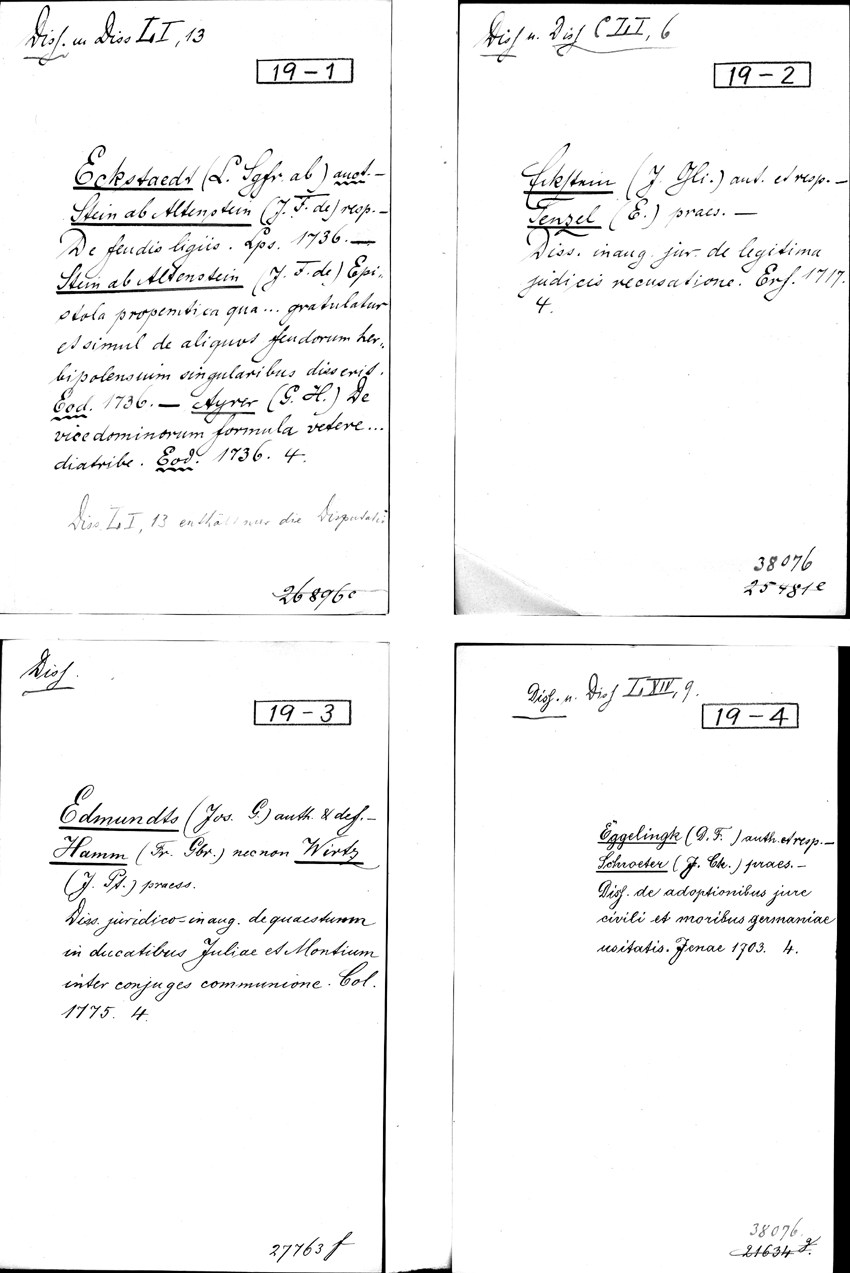 Diss. u. Diss L I, 13
19-1
Eckstaedt (L. Sgfr. ab) auct. —
Stein ab Altenstein (J. F. de) resp. —
De feudis ligiis. Lps. 1736. —
Stein ab Altenstein (J. F. de) Epi-
stola propemtica qua... gratulatur
et simul de aliquos feudorum her-
bipolensium singularibus disserit.
Eod. 1736. — Ayrer (G. H.) De
vicedominorum formula vetere...
diatribe. Eod. 1736. 4.
Diss. L I, 13 enthält nur die Disputati
26896c
Diss u. Diss C L I, 6
19-2
Eckstein (J. Gli.) aut. et resp. —
Tenzel (E.) praes. —
Diss. inaug. jur. de legitima
judicis recusatione. Erf. 1717.
4.
38076
25481e
Diss.
19-3
Edmundts (Jos. G.) auth. & def. —
Hamm (Fr. Gbr.) necnon Wirtz
(J. Pt.) praess.
Diss. juridico-inaug. de quaestuum
in ducatibus Juliae et Montium
inter conjuges communione. Col.
1775. 4.
27763 f
Diss. u. Diss L XIV, 9.
19-4
Eggelingk (D. F.) auth. et resp. —
Schroeter (J. Ch.) praes. —
Diss. de adoptionibus jure
civili et moribus germaniae
usitatis. Jenae 1703. 4.
38076.
21634 g.